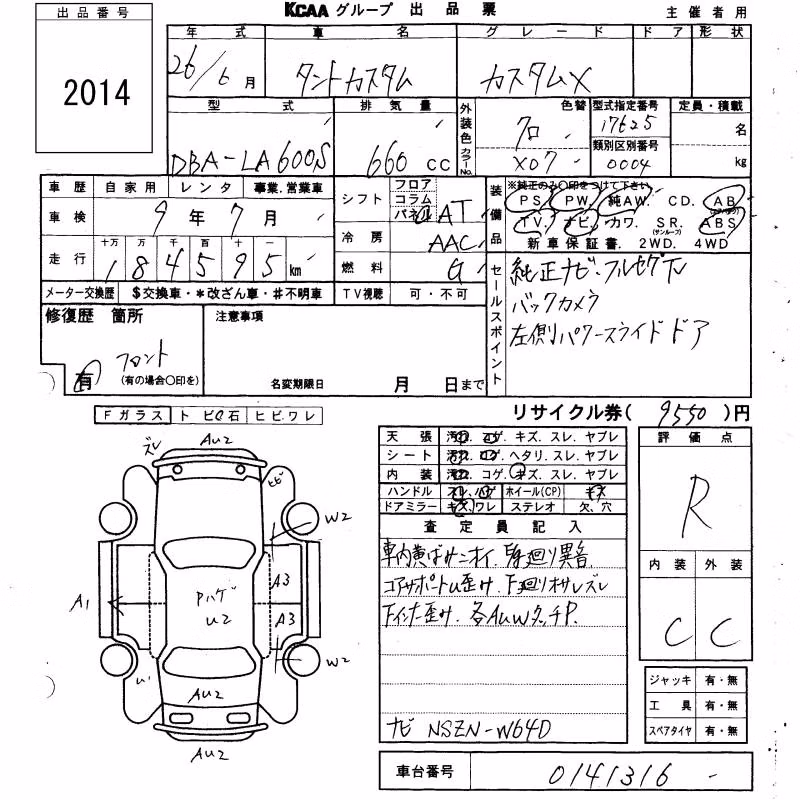 出品番号
KCAA グループ 出品票
主催者用
2014
年式 車名 グレード ドア 形状
26/6月 タントカスタム カスタムX
型式 排気量 外装色 カラーNo. 色替 型式指定番号 定員・積載
クロ 17625 名
類別区別番号
DBA-LA600S 660cc X07 0004 kg
車歴 自家用 レンタ 事業.営業車
シフト フロア コラム パネル AT
装備品 ※純正のみ○印をつけて下さい
PS. PW. 純AW. CD. AB(エアバッグ)
車検 9年7月
TV. ナビ. カワ. SR.(サンルーフ) ABS
冷房 AAC
新車保証書. 2WD. 4WD
走行 十万 万 千 百 十 一
184595km
燃料 G
セールスポイント
純正ナビ・フルセグTV
バックカメラ
左側パワースライドドア
メーター交換歴 $交換車・*改ざん車・#不明車 TV視聴 可・不可
修復歴 箇所 注意事項
フロント
有 (有の場合○印を) 名変期限日 月 日まで
Fガラス トビ石 ヒビ.ワレ
リサイクル券( 9550 )円
天張 汚れ. コゲ. キズ. スレ. ヤブレ
シート 汚れ. コゲ. ヘタリ. スレ. ヤブレ
内装 汚れ. コゲ. キズ. スレ. ヤブレ
ハンドル スレ. ハゲ ホイール(CP) キズ
ドアミラー キズ. ワレ ステレオ 欠. 穴
評価点
R
内装 外装
C C
査定員記入
車内黄ばみニオイ.
コアサポート歪み. F廻りオサレズレ
Fインナー歪み.
ナビ NSZN-W64D
ズレ AU2
ヒビ
W2
A3
Pハゲ
A1 U2 A3
W2
U1
AU2
AU2
ジャッキ 有・無
工具 有・無
スペアタイヤ 有・無
車台番号 0141316